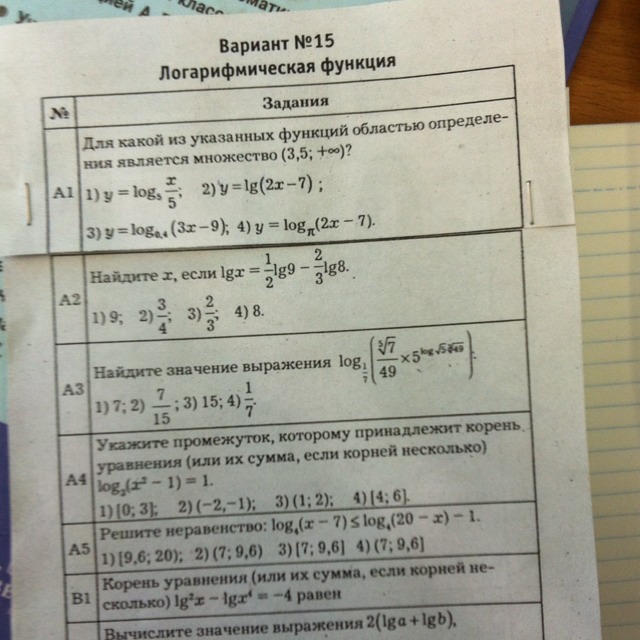 Вариант №15
Логарифмическая функция
№ Задания
А1 Для какой из указанных функций областью определе-
ния является множество (3,5; +∞)?
1) y = log₅ x/5; 2) y = lg(2x−7) ;
3) y = log₀,₄ (3x−9); 4) y = log_π(2x − 7).
А2 Найдите x, если lgx = 1/2 lg9 − 2/3 lg8.
1) 9; 2) 3/4; 3) 2/3; 4) 8.
А3 Найдите значение выражения
1) 7; 2) 7/15; 3) 15; 4) 1/7.
А4 Укажите промежуток, которому принадлежит корень
уравнения (или их сумма, если корней несколько)
(x² − 1) = 1.
1) [0; 3]; 2) (−2,−1); 3) (1; 2); 4) [4; 6].
А5 Решите неравенство: log₄(x − 7) ≤ log₄(20 − x) − 1.
1) [9,6; 20); 2) (7; 9,6) 3) [7; 9,6] 4) (7; 9,6]
В1 Корень уравнения (или их сумма, если корней не-
сколько) lg²x − lgx⁴ = −4 равен
Вычислите значение выражения 2(lga + lgb),